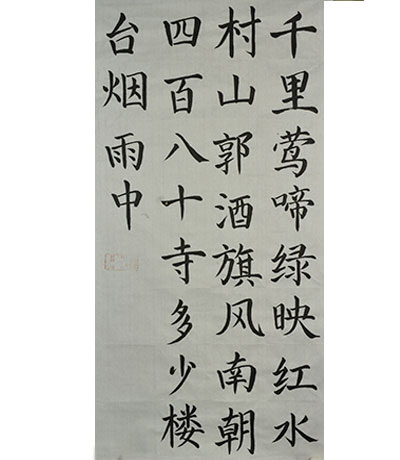 千里莺啼绿映红水
村山郭酒旗风南朝
四百八十寺多少楼
台烟雨中